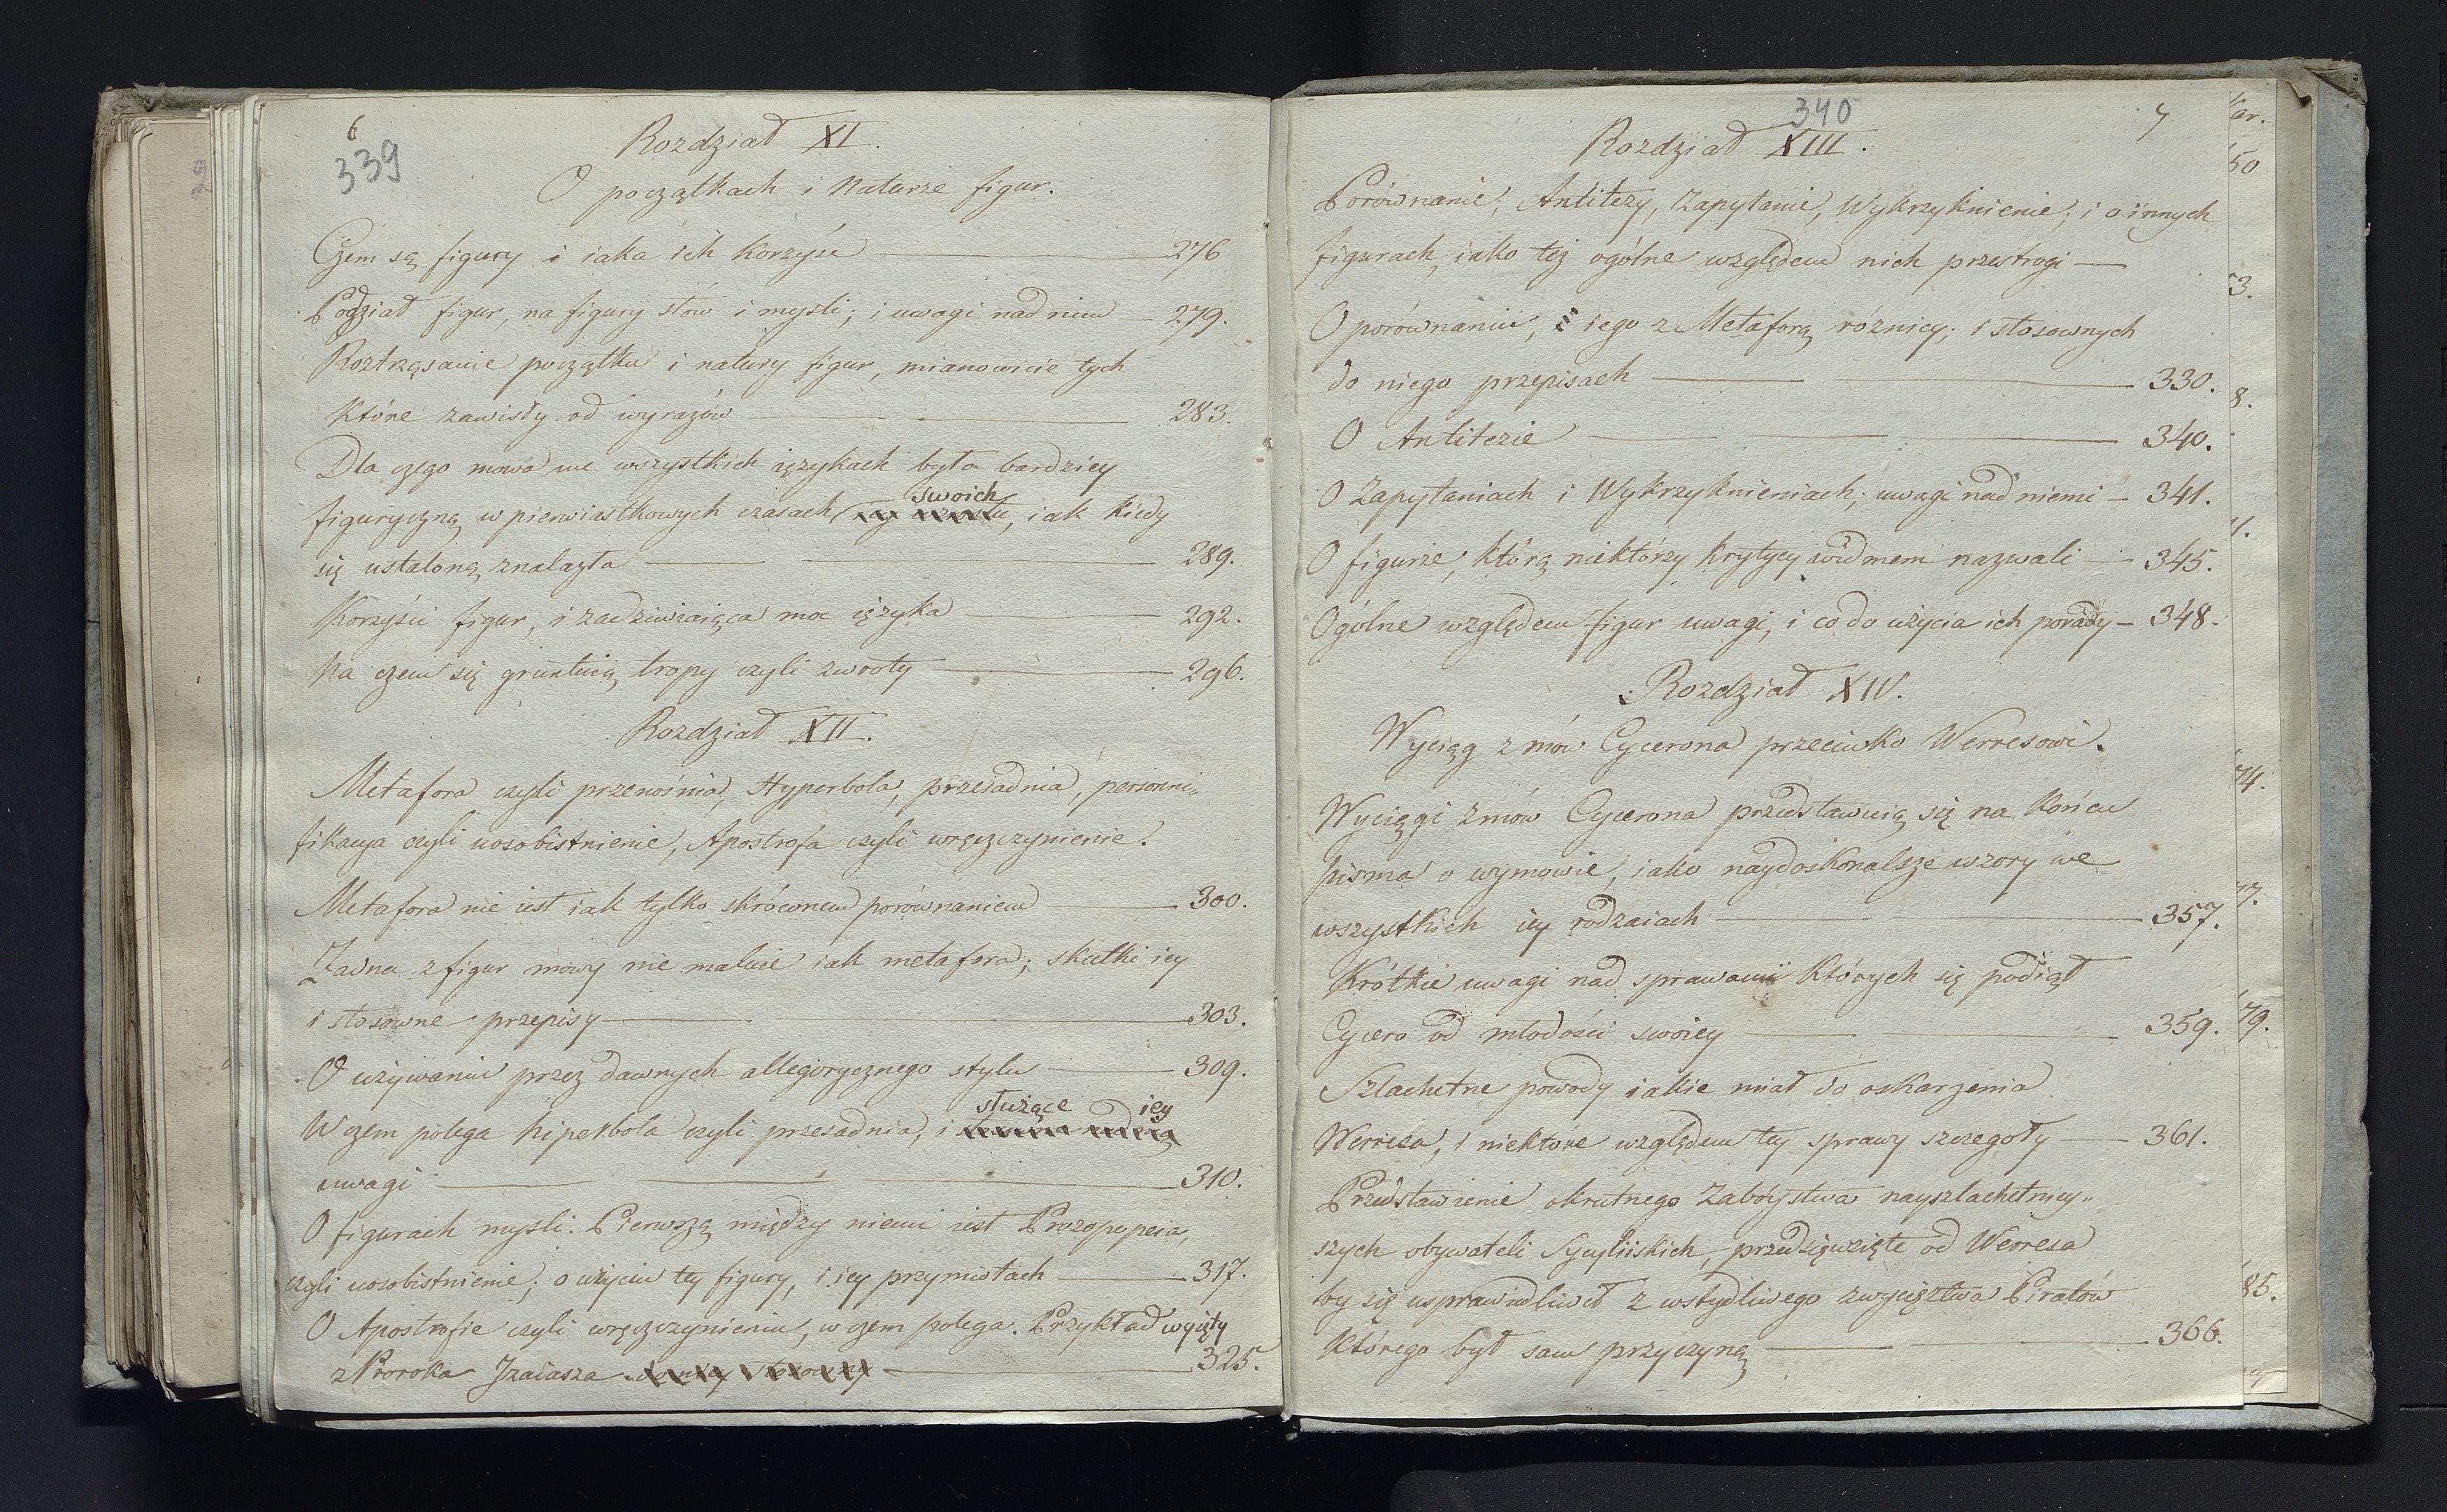 6
339
Rozdział XI.
O początkach i Naturze figur.
Czem są figury i iaka ich korzyść 276
Podział figur, na figury słów i mysli; i uwagi nad nim 279.
Roztrząsanie początku i natury figur, mianowicie tych
które zawisły od wyrazów 283.
Dla czego mowa we wszystkich ięzykach była bardziey
swoich
figuryczną w pierwiastkowych czasach, iak kiedy
się ustaloną znalazła 289.
Korzyści figur, i zadziwiaiąca moc ięzyka 292.
Na czem się gruntuią tropy czyli zwroty 296.
Rozdział XII.
Metafora czyli przenośnia, Hyperbola, przesadnia, personni„
fikacya czyli uosobistnienie, Apostrofa czyli wręczczynienie.
Metafora nie iest iak tylko skróconem porównaniem 300.
Żadna z figur mowy nie maluie iak metafora; skutki iey
i stosowne przepisy 303.
O używaniu przez dawnych allegorycznego stylu 309.
służące iey
W czem polega hiperbola czyli przesadnia, i
uwagi 310.
O figurach mysli. Pierwszą między niemi iest Prozopopeia,
czyli uosobistnienie; o użyciu tey figury, i iey przymiotach 317.
O Apostrofie czyli wręczczynieniu, w czem polega. Przykład wyięty
z Proroka Izaiasza 325.
340
7
Rozdział XIII.
Porównanie, Antitezy, Zapytanie, Wykrzyknienie; i o innych
figurach, iako też ogólne względem nich przestrogi
O porównaniu, i iego z Metaforą różnicy; i stosownych
do niego przepisach 330.
O Antitezie 340.
O Zapytaniach i Wykrzyknieniach; uwagi nad niemi 341.
O figurze, którą niektórzy krytycy widmem nazwali 345.
Ogólne względem figur uwagi, i co do użycia ich porady 348.
Rozdział XIV.
Wyciąg z mów Cycerona przeciwko Werresowi.
Wyciągi z mów Cycerona przedstawuią się na końcu
pisma o wymowie, iako naydoskonalsze wzory we
wszystkich iey rodzaiach 357.
Krótkie uwagi nad sprawami których się podiął
Cycero od młodości swoiey 359.
Szlachetne powody iakie miał do oskarzenia
Werresa, i niektóre względem tey sprawy szczegoły 361.
Przedstawienie okrutnego Zabóystwa nayszlachetniey„
szych obywateli Sycyliiskich, przedsięwzięte od Werresa
by się usprawiedliwił z wstydliwego zwycięztwa Piratów
którego był sam przyczyną 366.